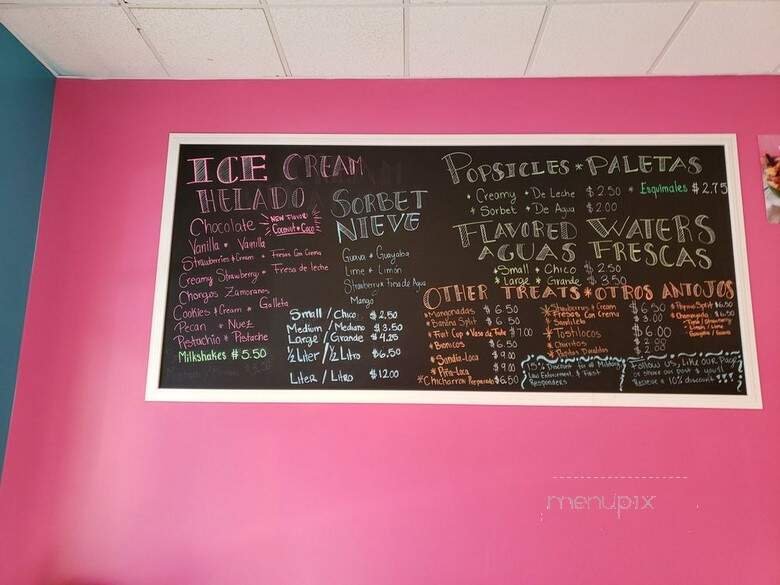 ICE CREAM
HELADO
Chocolate
NEW Flavor
Coconut * Coco
Vanilla * Vainilla
Strawberries & Cream * Fresas Con Crema
Creamy Strawberry * Fresa de leche
Chongos Zamoranos
Cookies & Cream * Galleta
Pecan * Nuez
Pistachio * Pistache
Milkshakes $5.50
SORBET
NIEVE
Guava * Guayaba
Lime * Limón
Strawberry * Fresa de Agua
Mango
Small / Chico $2.50
Medium / Mediano $3.50
Large / Grande $4.25
½ Liter / ½ Litro $6.50
Liter / Litro $12.00
POPSICLES * PALETAS
* Creamy * De Leche $2.50 * Esquimales $2.75
* Sorbet * De Agua $2.00
FLAVORED WATERS
AGUAS FRESCAS
* Small * Chico $2.50
* Large * Grande $3.50
OTHER TREATS * OTROS ANTOJOS
* Mangonadas $6.50
* Banana Split $6.50
* Fruit Cup * Vaso de Fruta $7.00
* Bionicos $6.50
* Sandia-Loca $9.00
* Piña-Loca $9.00
* Chicharron Preparado $6.50
* Strawberry & Cream $6.50
Fresas Con Crema
* Sandielito $3.00
* Tostilocos $6.00
* Churritos
* Papitas Doraditas
$6.50
* Chamoyada $6.50
15% Discount for all Military
Law Enforcement & First
Responders
Follow us, Like our Page
or share our post & you'll
Receive a 10% discount !!!
menupix